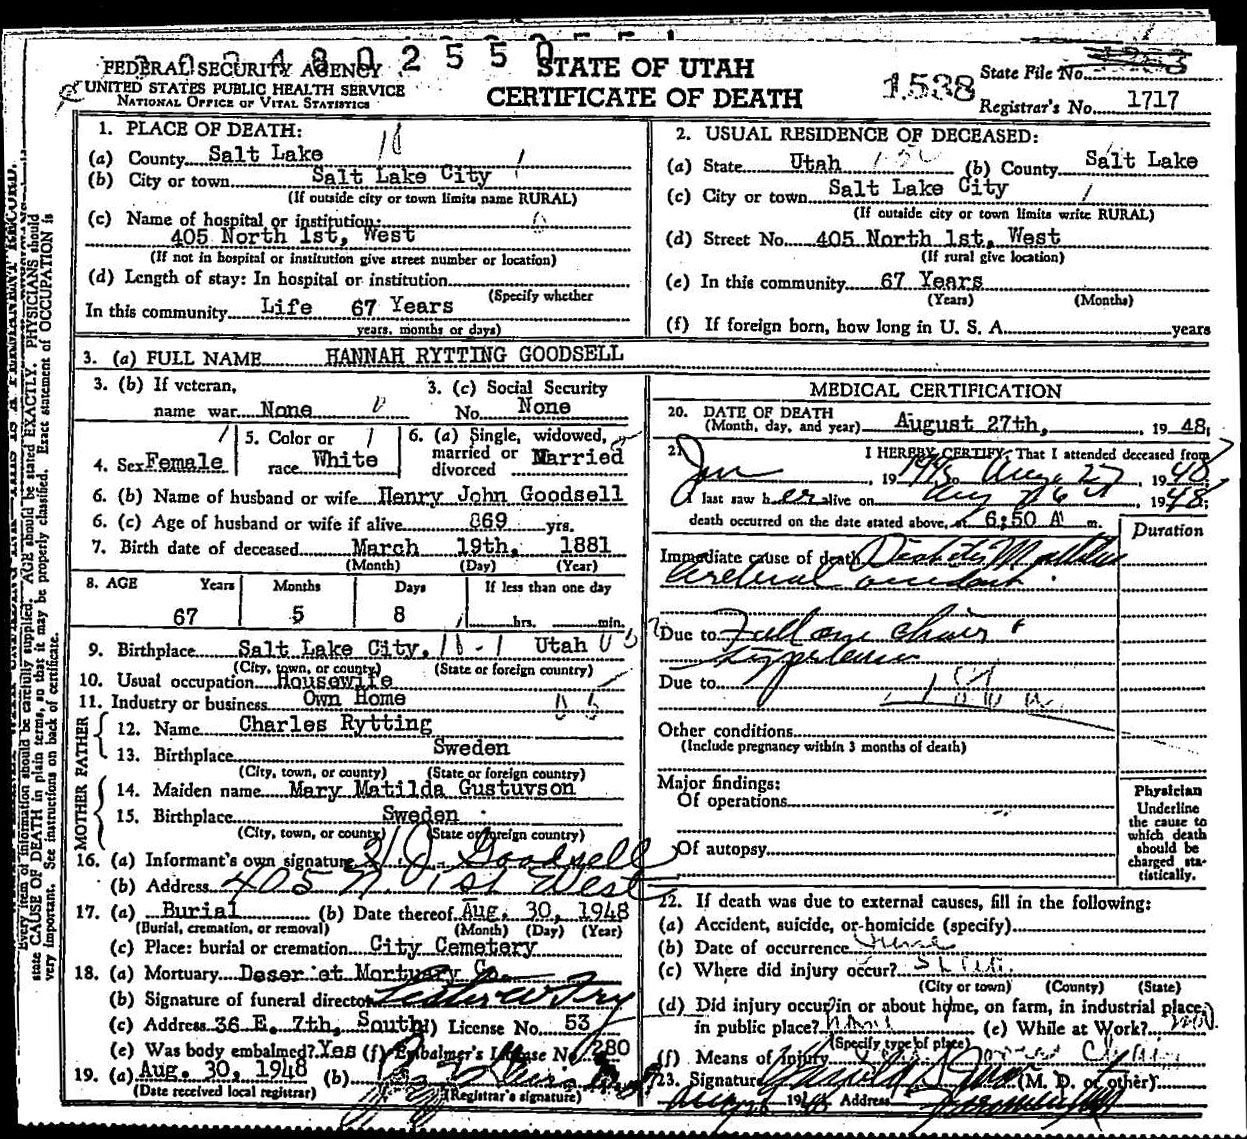 STATE OF UTAH
CERTIFICATE OF DEATH
FEDERAL SECURITY AGENCY
UNITED STATES PUBLIC HEALTH SERVICE
NATIONAL OFFICE OF VITAL STATISTICS
1538
State File No.
Registrar's No. 1717
1. PLACE OF DEATH: 18
(a) County Salt Lake
(b) City or town Salt Lake City
(If outside city or town limits name RURAL)
(c) Name of hospital or institution:
405 North 1st, West
(If not in hospital or institution give street number or location)
(d) Length of stay: In hospital or institution
(Specify whether
In this community Life 67 Years
years, months or days)
2. USUAL RESIDENCE OF DECEASED:
(a) State Utah (b) County Salt Lake
(c) City or town Salt Lake City
(If outside city or town limits write RURAL)
(d) Street No. 405 North 1st, West
(If rural give location)
(e) In this community 67 Years
(Years) (Months)
(f) If foreign born, how long in U. S. A. years
3. (a) FULL NAME HANNAH RYTTING GOODSELL
3. (b) If veteran,
name war None
3. (c) Social Security
No. None
4. Sex Female
5. Color or
race White
6. (a) Single, widowed,
married or
divorced Married
6. (b) Name of husband or wife Henry John Goodsell
6. (c) Age of husband or wife if alive 69 yrs.
7. Birth date of deceased March 19th, 1881
(Month) (Day) (Year)
8. AGE Years Months Days If less than one day
67 5 8 hrs. min.
9. Birthplace Salt Lake City, Utah
(City, town, or county) (State or foreign country)
10. Usual occupation Housewife
11. Industry or business Own Home
FATHER
12. Name Charles Rytting
13. Birthplace Sweden
(City, town, or county) (State or foreign country)
MOTHER
14. Maiden name Mary Matilda Gustuvson
15. Birthplace Sweden
(City, town, or county) (State or foreign country)
16. (a) Informant's own signature H J Goodsell
(b) Address 405 N. 1st West
17. (a) Burial (b) Date thereof Aug. 30, 1948
(Burial, cremation, or removal) (Month) (Day) (Year)
(c) Place: burial or cremation City Cemetery
18. (a) Mortuary Deseret Mortuary Co.
(b) Signature of funeral director
(c) Address 36 E. 7th, South (d) License No. 53
(e) Was body embalmed? Yes (f) Embalmer's License No. 280
19. (a) Aug. 30, 1948 (b)
(Date received local registrar) (Registrar's signature)
MEDICAL CERTIFICATION
20. DATE OF DEATH
(Month, day, and year) August 27th, 1948;
21. I HEREBY CERTIFY, That I attended deceased from
Jan, 1948 to Aug 27, 1948
I last saw her alive on Aug 26, 1948;
death occurred on the date stated above, at 6:50 A m.
Duration
Immediate cause of death Diabetes Mellitus
Cerebral accident
Due to Fall one chair
Due to
Other conditions
(Include pregnancy within 3 months of death)
Major findings:
Of operations
Of autopsy
Physician
Underline
the cause to
which death
should be
charged sta-
tistically.
22. If death was due to external causes, fill in the following:
(a) Accident, suicide, or homicide (specify)
(b) Date of occurrence
(c) Where did injury occur?
(City or town) (County) (State)
(d) Did injury occur in or about home, on farm, in industrial place,
in public place? (e) While at Work?
(Specify type of place)
(f) Means of injury
23. Signature (M. D. or other)
Address